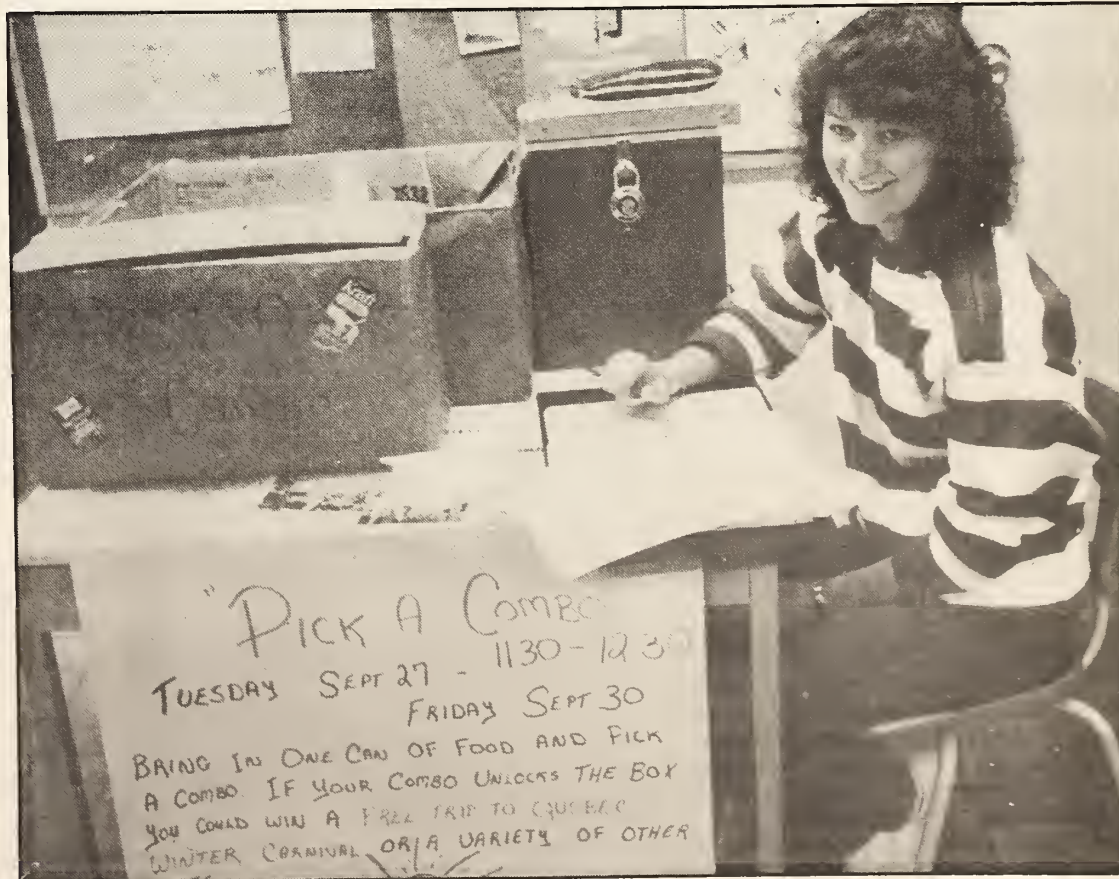 Kraft
"PICK A COMBO
TUESDAY SEPT 27 - 1130-1230
FRIDAY SEPT 30
BRING IN ONE CAN OF FOOD AND PICK
A COMBO. IF YOUR COMBO UNLOCKS THE BOX
YOU COULD WIN A FREE TRIP TO QUEBEC
WINTER CARNIVAL OR A VARIETY OF OTHER